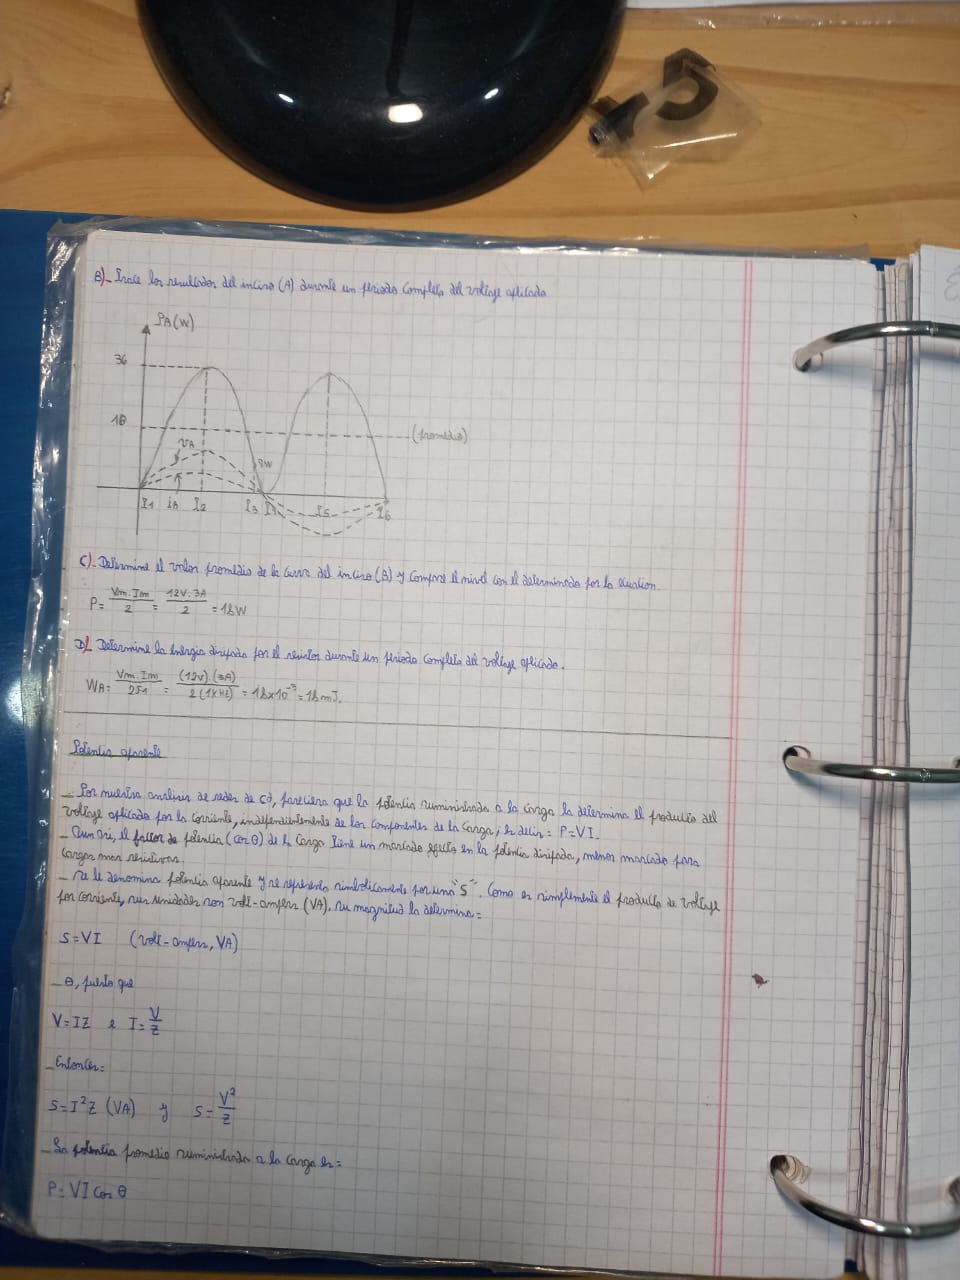 B)- Trace los resultados del inciso (A) durante un periodo completo del voltaje aplicado
PA(W)
36
18
(promedio)
VA
I1 iA I2 I3 I4 I5 I6
C)- Determine el valor promedio de la curva del inciso (B) y compare el nivel con el determinado por la ecuation.
P= Vm.Im/2 = 12V.3A/2 = 18W
D)- Determine la energia disipada por el resistor durante un periodo completo del voltaje aplicado.
WA= Vm.Im/2f1 = (12V).(3A)/2(1KHz) = 18x10⁻³ = 18mJ.
Potencia aparente
_ Por nuestro analisis de redes de cd, pareciera que la potencia suministrada a la carga la determina el producto del
voltaje aplicado por la corriente, independientemente de los componentes de la carga; es decir= P=VI.
_ Aun asi, el factor de potencia (cos θ) de la carga tiene un marcado efecto en la potencia disipada, menos marcado para
cargas mas resistivas.
_ Se le denomina potencia aparente y se representa simbolicamente por una "S". Como es simplemente el producto de voltaje
por corriente, sus unidades son volt-ampers (VA). Su magnitud la determina=
S=VI (volt-ampers, VA)
_ O, puesto que
V=IZ e I=V/Z
_ Entonces=
S=I²Z (VA) y S=V²/Z
_ La potencia promedio suministrada a la carga es=
P=VI cos θ